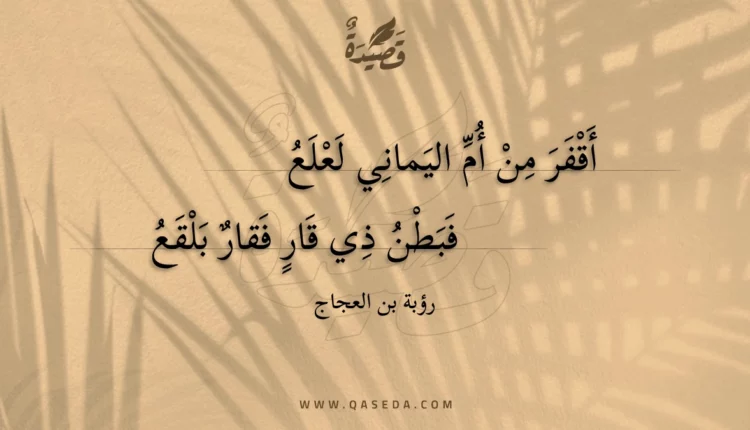 قَصِيْدَةٌ
أَقْفَرَ مِنْ أُمِّ اليَمانِي لَعْلَعُ
فَبَطْنُ ذِي قَارٍ فَقارٌ بَلْقَعُ
رؤبة بن العجاج
WWW.QASEDA.COM